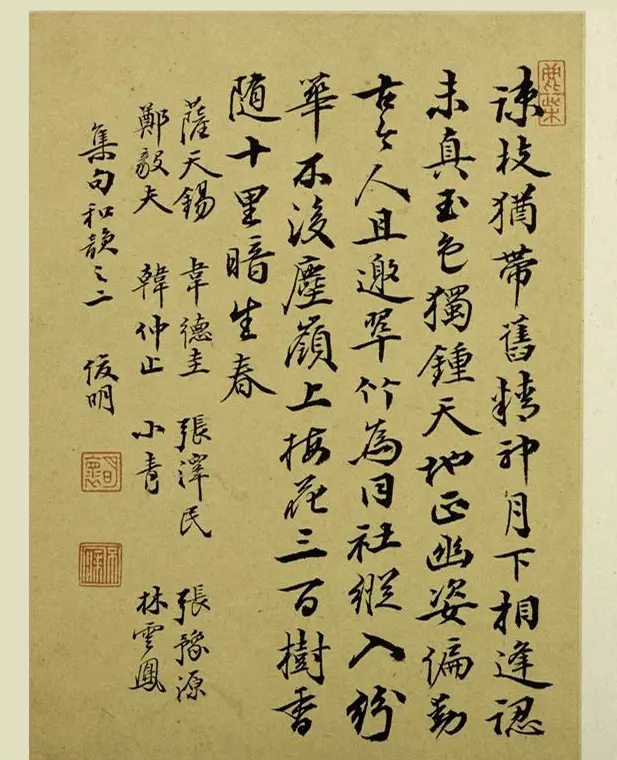 鹿柴
疎枝猶帶舊精神月下相逢認
未真玉色獨鍾天地正幽姿偏動
古今人且邀翠竹為同社縱入紛
華不後塵嶺上梅花三百樹香
随十里暗生春
薩天錫 韋德圭 張澤民 張豫源
鄭毅夫 韓仲止 小青 林雲鳳
集句和韻之二 俊明